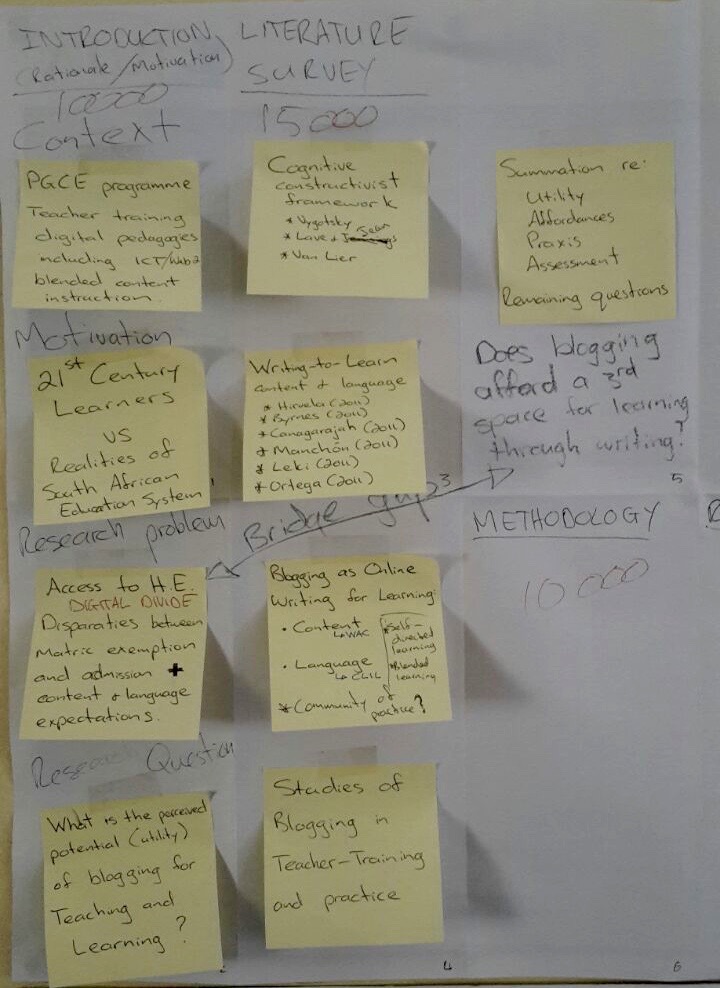 INTRODUCTION
(Rationale/Motivation)
10000
Context
PGCE programme
Teacher training
digital pedagogies
including ICT/Web2
blended content
instruction.
Motivation
21st Century
Learners
VS
Realities of
South African
Education System
Research problem
Access to H.E.
DIGITAL DIVIDE
Disparaties between
Matric exemption
and admission +
content & language
expectations.
Research Question
What is the perceived
potential (utility)
of blogging for
Teaching and
Learning?
LITERATURE
SURVEY
15000
Cognitive
constructivist
framework
* Vygotsky
* Lave &
* Van Lier
Writing-to-Learn
content & language
* Hirvela (2011)
* Byrnes (2011)
* Canagarajah (2011)
* Manchón (2011)
* Leki (2011)
* Ortega (2011)
Bridge gap
Blogging as Online
Writing for Learning:
• Content
↳ WAC
• Language
↳ CLIL
* self-
directed
learning
* Blended
learning
* Community of
practice?
Studies of
Blogging in
Teacher-Training
and practice
4
Summation re:
Utility
Affordances
Praxis
Assessment
Remaining questions
Does blogging
afford a 3rd
space for learning
through writing?
5
METHODOLOGY
10000
6